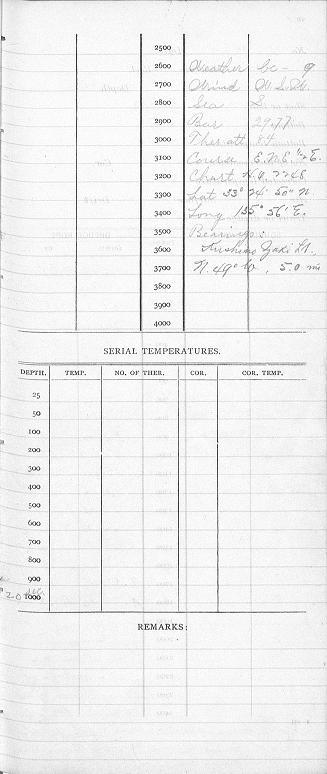 2500
2600 Weather bc - 9
2700 Wind W.S.W.
2800 Sea S.
2900 Bar 29.77
3000 Ther att 84
3100 Course E.N.E. ½ E.
3200 Chart H.O. 2248
3300 Lat 33° 24' 50" N
3400 Long 135° 56' E.
3500 Bearings:
3600 Kushimo Zaki Lt.
3700 N. 49° W., 5.0 mi
3800
3900
4000
SERIAL TEMPERATURES.
DEPTH. TEMP. NO. OF THER. COR. COR. TEMP.
25
50
100
200
300
400
500
600
700
800
900
1000
REMARKS: